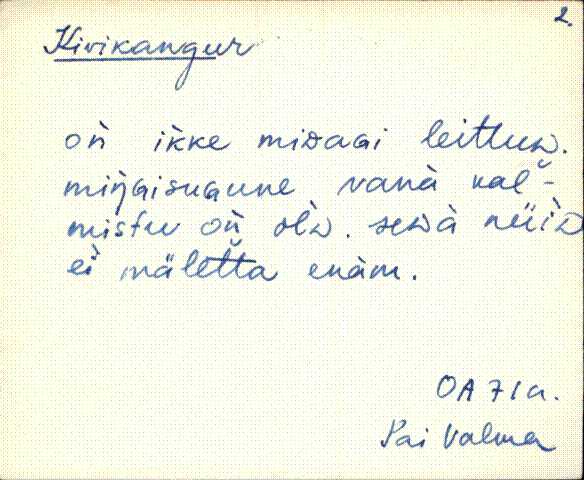 2.
Kivikangur
on̄ ik̀ke miᴅagi leit̀tuᴅ.
miŋ̀gisugune vanà kal̆-
mistu on̄ olᴅ. seᴅà nüìᴅ
eì mälet̆ta enàm.
OA 71a.
Pai Valma